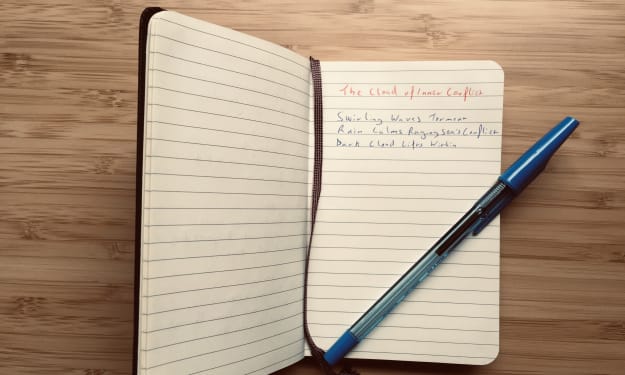 The Cloud of Inner Conflict
Swirling Waves Torment
Rain Calms Raging Sea's Conflict
Dark Cloud Lifts Within